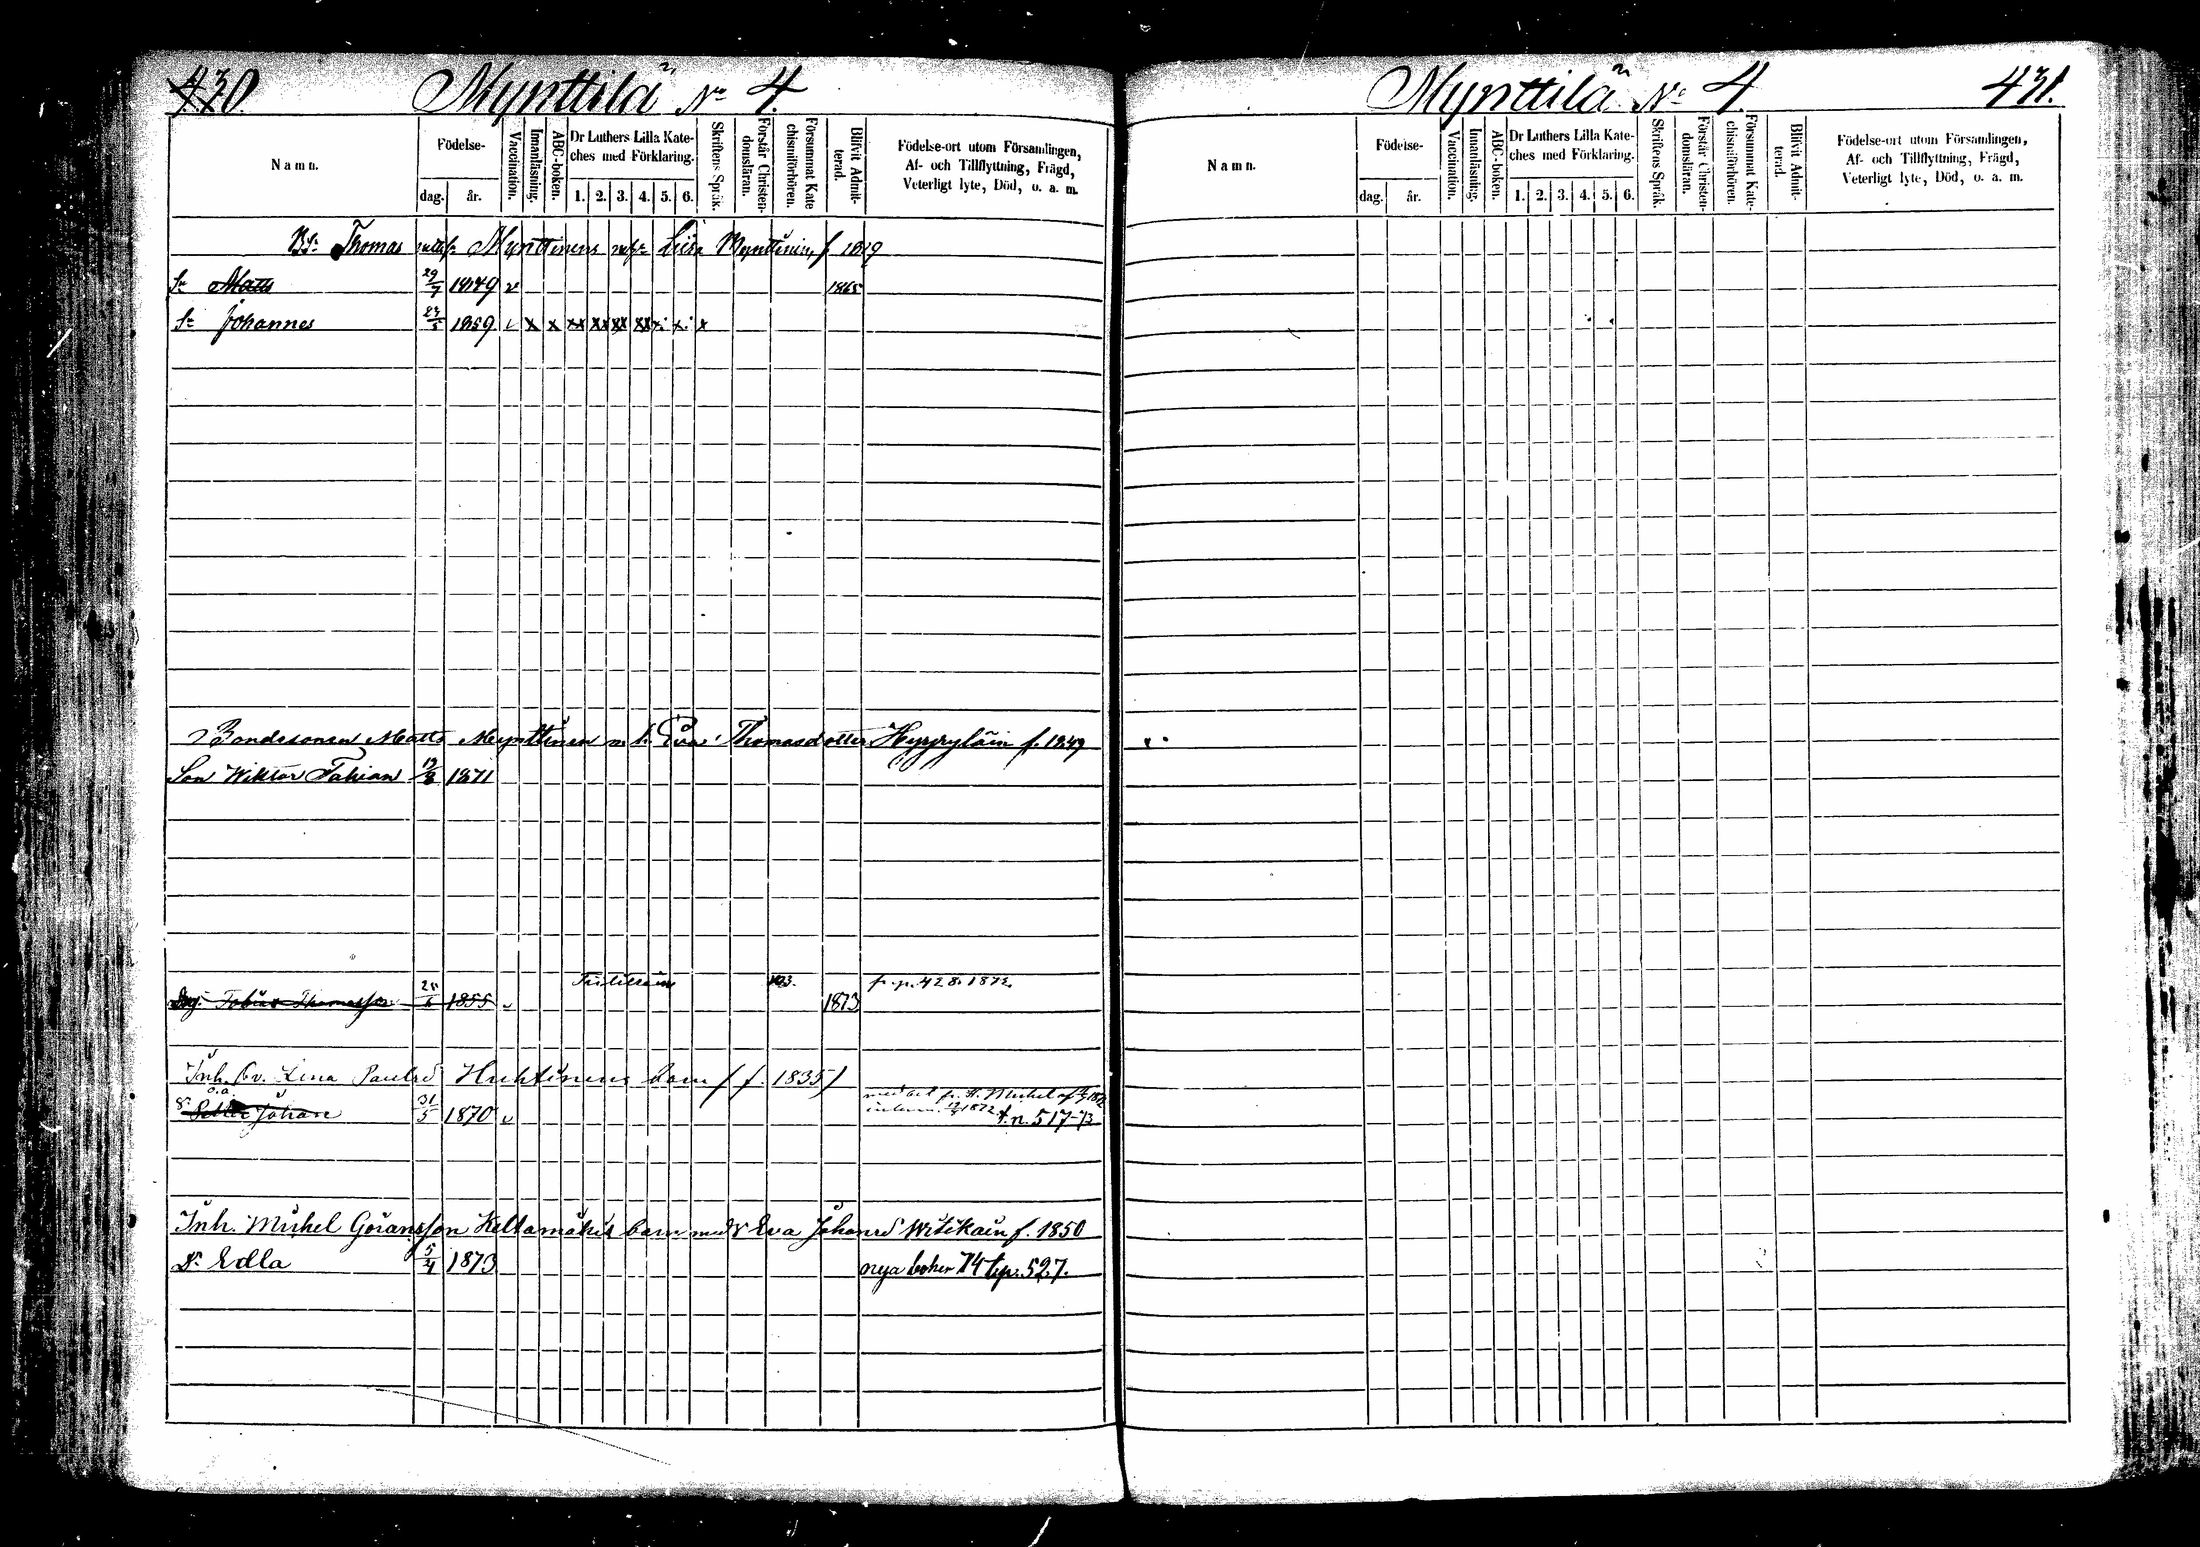 430. Mynttilä No 4.
Namn.
Födelse-
dag. år.
Vaccination.
Innanläsning.
ABC-boken.
Dr Luthers Lilla Kate-
ches med Förklaring.
1. 2. 3. 4. 5. 6.
Skriftens Språk.
Förstår Christen-
domsläran.
Försummat Kate
chismiförhören.
Blifvit Admit-
terad.
Födelse-ort utom Församlingen,
Af- och Tillflyttning, Frägd,
Veterligt lyte, Död, o. a. m.
Thomas Mynttinens Lisa Mynttinen f 1819
Sn Matts 29/7 1849 v 1865
Sn Johannes 23/5 1859 v x x xx xx xx xx x x x
Bondesonen Matts Mynttinen m. h. Eva Thomasdotter Hyyryläin f. 1849
Son Wiktor Fabian 19/8 1871
fr. p. 428. 1872.
Tobias Thomasson 1855 v 1873
Inh. Lina Paulsd Huhtinens barn (f. 1835)
Sn Petter Johan 31/5 1870 v fr. St. Michel 1872 1872 t. n. 517-73
Inh. Michel Göransson Keltamäkis barn med Eva Johansd Witikain f. 1850
Dr Edla 5/4 1873 nya boken 74 t. p. 527.
Mynttilä No 4 431.
Namn.
Födelse-
dag. år.
Vaccination.
Innanläsning.
ABC-boken.
Dr Luthers Lilla Kate-
ches med Förklaring.
1. 2. 3. 4. 5. 6.
Skriftens Språk.
Förstår Christen-
domsläran.
Försummat Kate-
chismiförhören.
Blifvit Admit-
terad.
Födelse-ort utom Församlingen,
Af- och Tillflyttning, Frägd,
Veterligt lyte, Död, o. a. m.